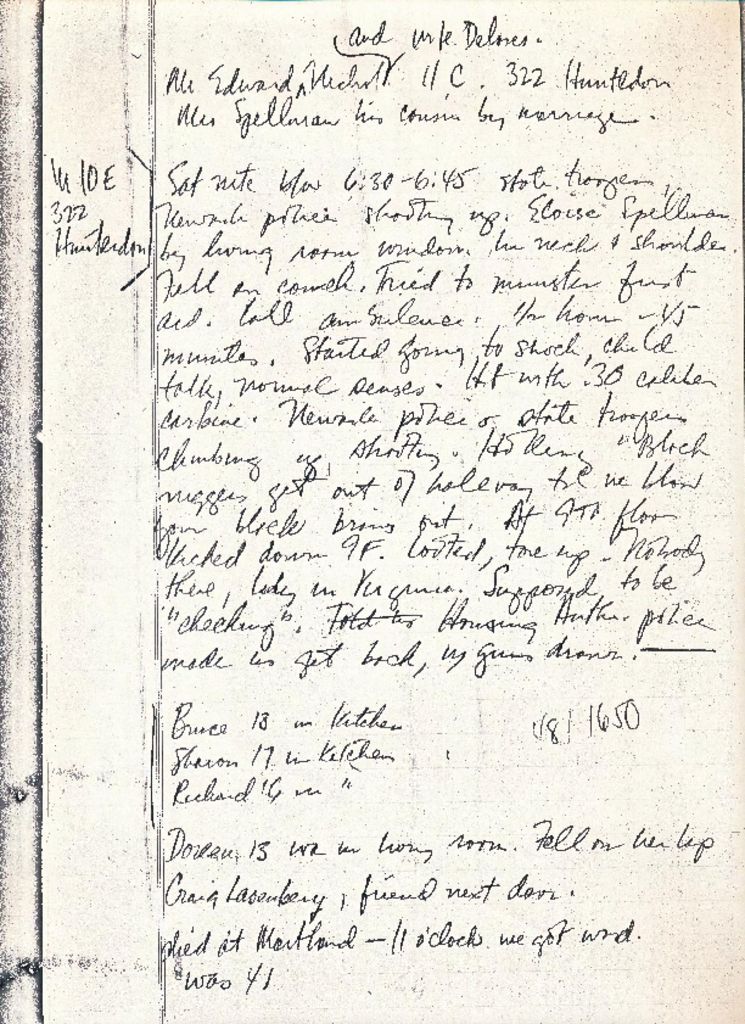 and wife Delores.
Mr Edward Nichols 11 C. 322 Hunterdon
Mrs Spellman his cousin by marriage.
In 10E
322
Hunterdon
Sat nite btw 6:30-6:45 state troopers,
Newark police shooting up. Eloise Spellman
by living room window. In neck & shoulder.
Fell on couch. Tried to minister first
aid. Call ambulence. 1/2 hour - 45
minutes. Started going to shock, could
talk, normal senses. Hit with .30 caliber
carbine. Newark police or state troopers
climbing up, shooting. Hollering "Black
niggers get out of hallway til we blow
your black brains out. At 9th floor
kicked down 9F. looted, tore up. Nobody
there, lady in Virginia. Supposed to be
"checking". Told us Housing Auth. police
made us get back, w/ guns drawn.
Bruce 13 in kitchen
Sharon 17 in kitchen
Richard 16 in "
1650
Doreen, 13 was in living room. Fell on her lap
Craig Lasenberry, friend next door.
died at Martland - 11 o'clock we got word.
was 41